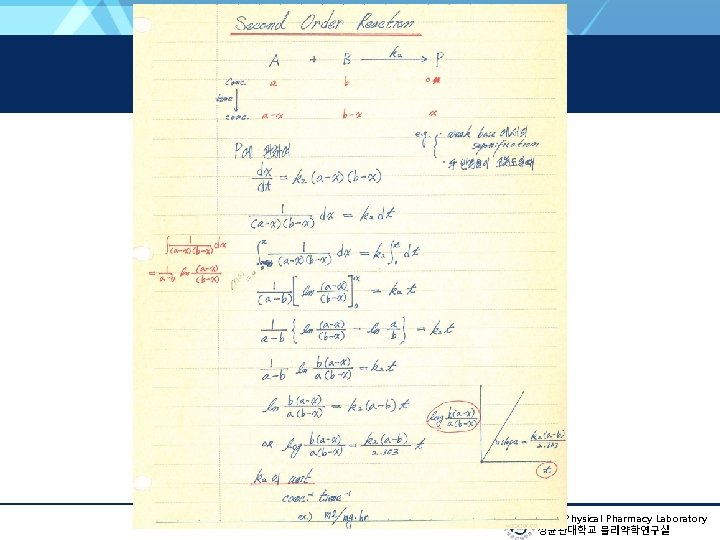 Second Order Reaction
A + B —k₂→ P
conc. a b 0
time
conc. a-x b-x x
e.g. { · weak base 에서의 saponification
P에 관하여
dx/dt = k₂(a-x)(b-x)
1/((a-x)(b-x)) dx = k₂dt
∫ 1/((a-x)(b-x)) dx
= 1/(a-b) ln (a-x)/(b-x)
∫₀ˣ 1/((a-x)(b-x)) dx = k₂∫₀ᵗ dt
1/(a-b) [ln (a-x)/(b-x)]₀ˣ = k₂t
1/(a-b) {ln (a-x)/(b-x) - ln a/b} = k₂t
1/(a-b) ln b(a-x)/a(b-x) = k₂t
ln b(a-x)/a(b-x) = k₂(a-b)t
or log b(a-x)/a(b-x) = k₂(a-b)/2.303 t
log b(a-x)/a(b-x)
slope = k₂(a-b)/2.303
t
k₂의 unit
conc⁻¹ time⁻¹
ex) ml/mg·hr
Physical Pharmacy Laboratory
성균관대학교 물리약학연구실